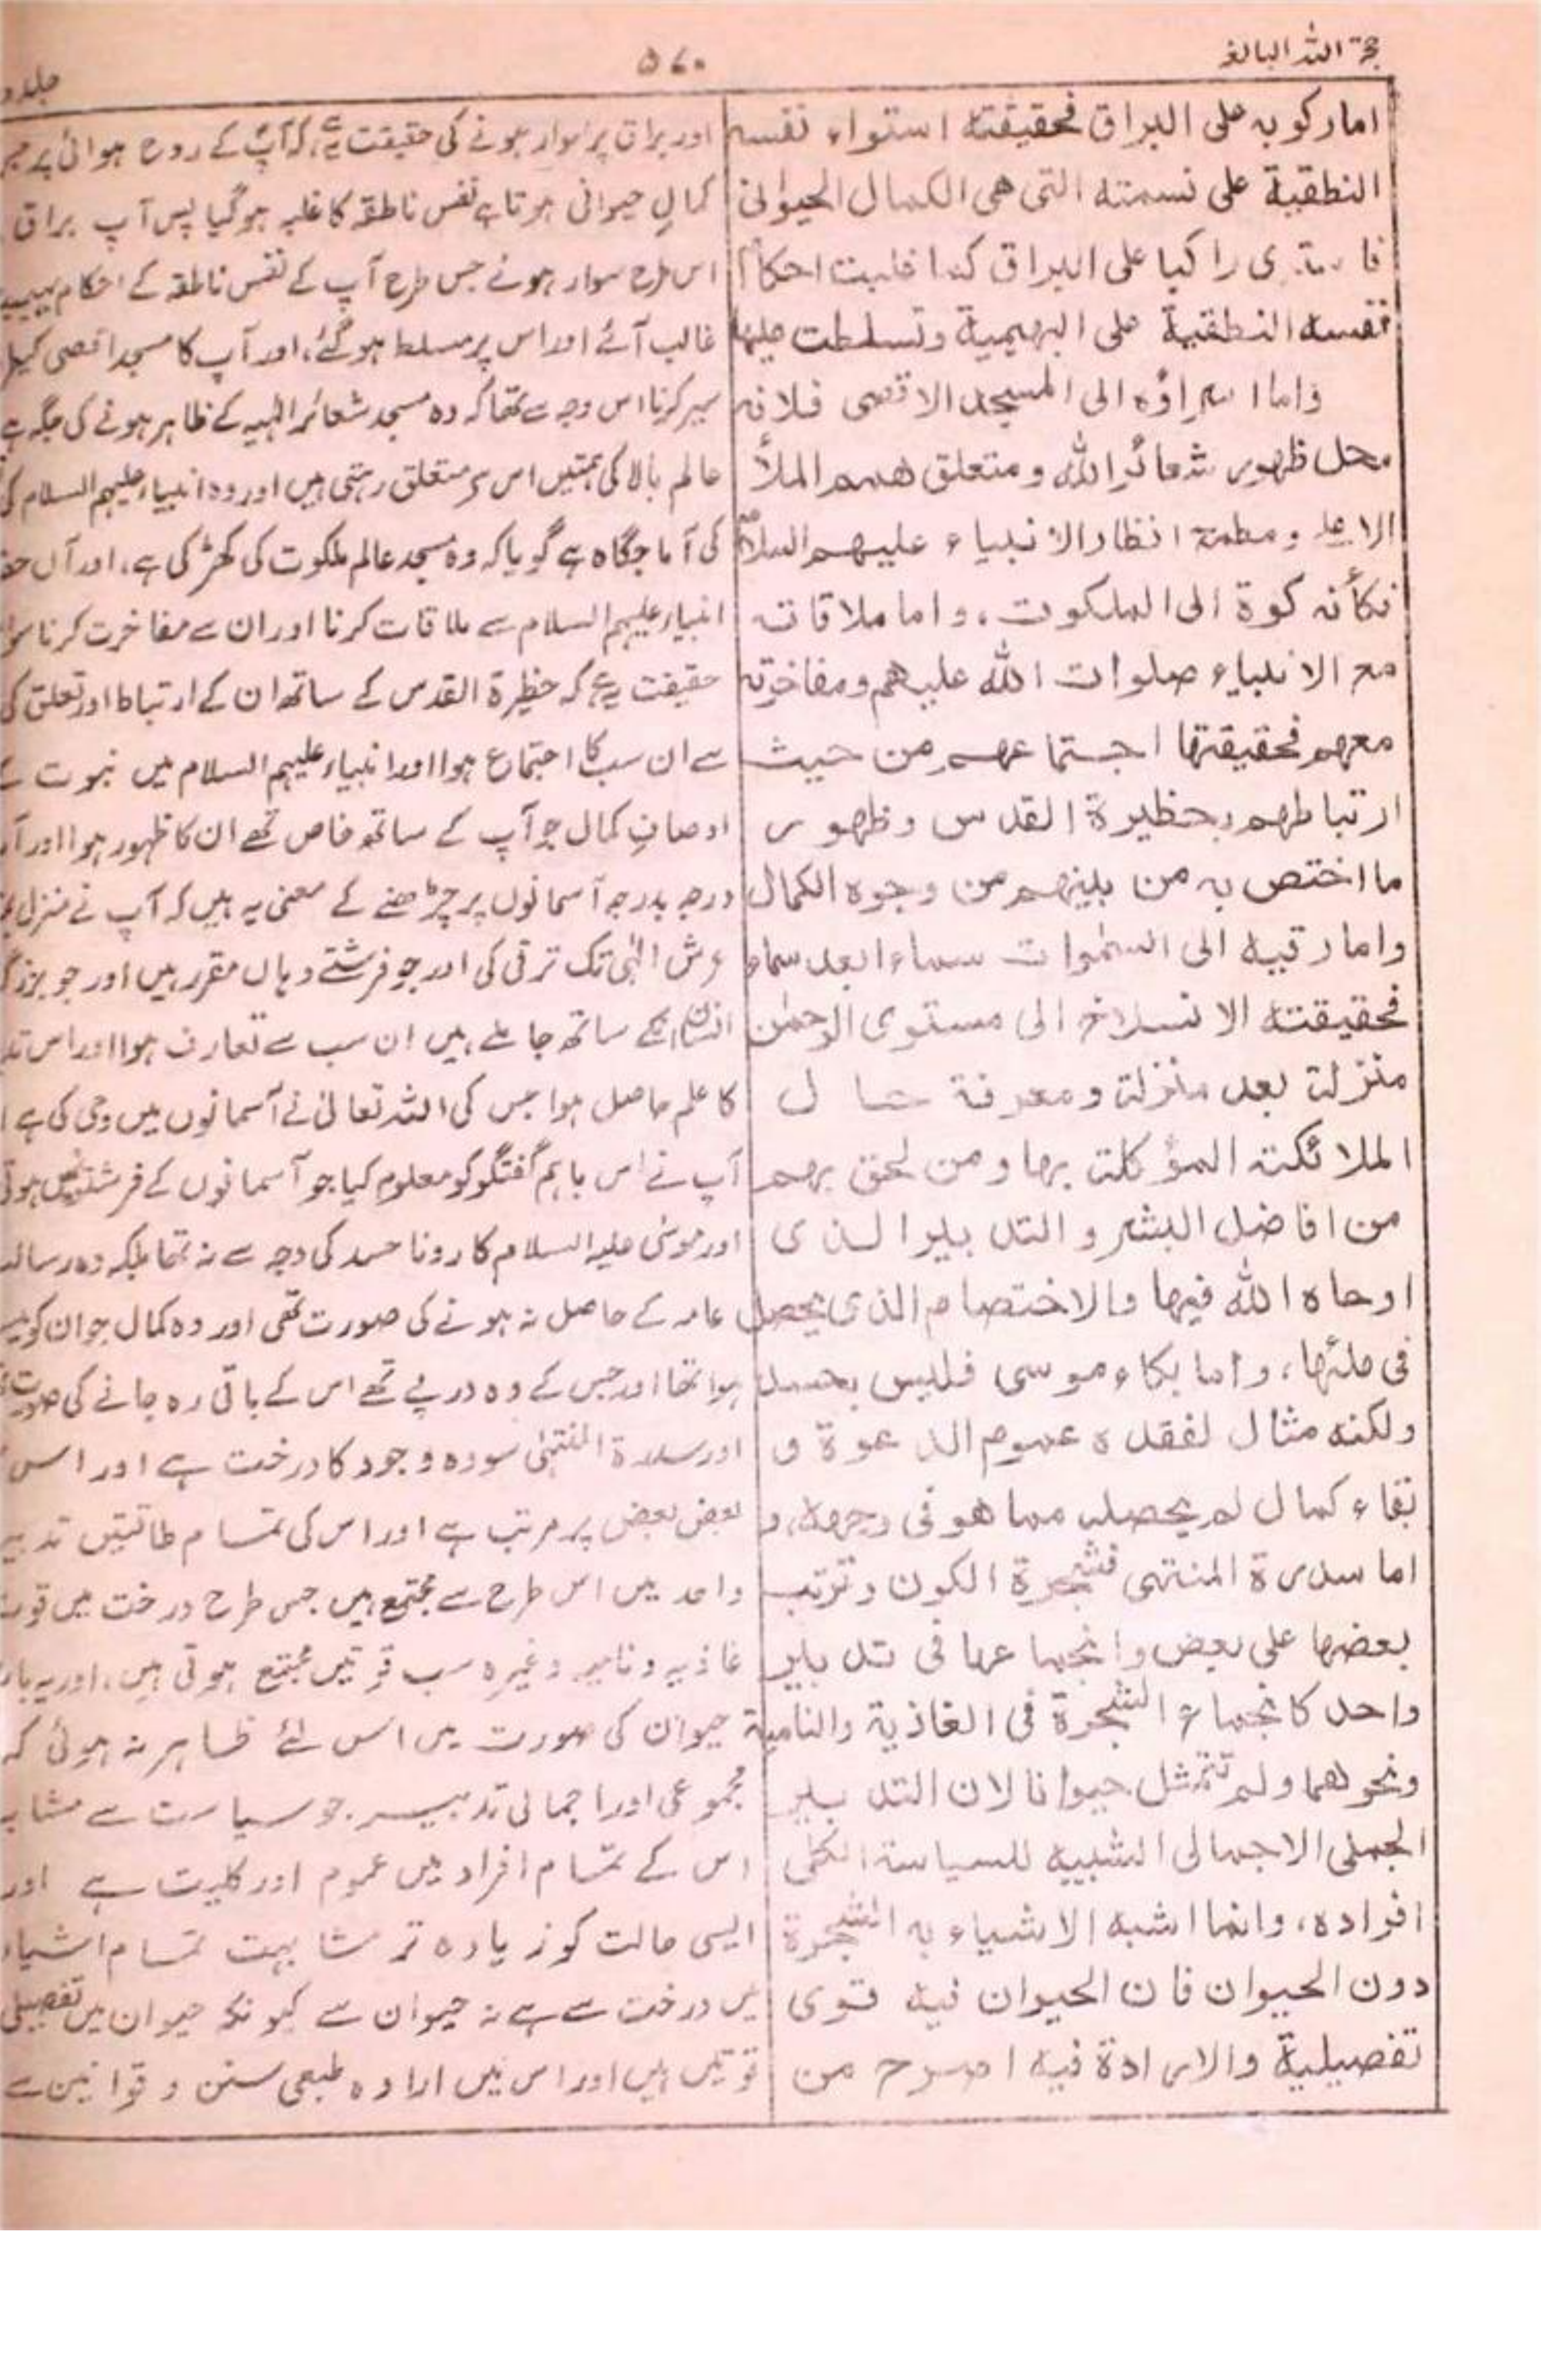 حجة اللہ البالغہ
۵۷۰
جلد دو
اما ركوبه على البراق فحقيقته استواء نفسه
النطقية على نسمته التى هى الكمال الحيوانى
فاستوى راكبا على البراق كما غلبت احكام
نفسه النطقية على البهيمية وتسلطت عليها
واما اسراؤه الى المسجد الاقصى فلانه
محل ظهور شعائر الله ومتعلق همم الملأ
الاعلى ومطمح انظار الانبياء عليهم السلام
فكأنه كوة الى الملكوت، واما ملاقاته
مع الانبياء صلوات الله عليهم ومفاخرته
معهم فحقيقتها اجتماعهم من حيث
ارتباطهم بحظيرة القدس وظهور
ما اختص به من بينهم من وجوه الكمال
واما رقيه الى السمٰوات سماء ابعد سماء
فحقيقته الانسلاخ الى مستوى الرحمٰن
منزلة بعد منزلة ومعرفة حال
الملائكة المؤكلة بها ومن لحق بهم
من افاضل البشر والتدبير الذى
اوحاه الله فيها والاختصام الذى يحصل
فى ملئها، واما بكاء موسى فليس بحسد
ولكنه مثال لفقده عموم الدعوة و
بقاء كمال لم يحصله مما هو فى وجهه، و
اما سدرة المنتهى فشجرة الكون وترتب
بعضها على بعض وانجماعها فى تدبير
واحد كانجماع الشجرة فى الغاذية والنامية
ونحوهما ولم تتمثل حيوانا لان التدبير
الجملى الاجمالى الشبيه للسياسة الكلى
افراده، وانما اشبه الاشياء به الشجرة
دون الحيوان فان الحيوان فيه قوى
تفصيلية والارادة فيه اصرح من
اور براق پر سوار ہونے کی حقیقت یہ ہے کہ آپؐ کے روح ہوائی پر
کمالِ حیوانی ہوتا ہے نفس ناطقہ کا غلبہ ہوگیا پس آپ براق
اس طرح سوار ہونے جس طرح آپ کے نفس ناطقہ کے احکام
غالب آئے اور اس پر مسلط ہوگئے، اور آپ کا مسجد اقصی کیل
سیر کرنا اس وجہ سے تھا کہ وہ مسجد شعائر الٰہیہ کے ظاہر ہونے کی جگہ ہے
عالم بالا کی ہمتیں اس پر متعلق رہتی ہیں اور وہ انبیاء علیہم السلام کی
کی آماجگاہ ہے گویا کہ وہ مسجد عالم ملکوت کی کھڑکی ہے، اور آں حض
انبیاء علیہم السلام سے ملاقات کرنا اور ان سے مفاخرت کرنا سو
حقیقت یہ ہے کہ حظیرۃ القدس کے ساتھ ان کے ارتباط اور تعلق کی
سے ان سب کا اجتماع ہوا اور انبیاء علیہم السلام میں نبوت کے
اوصافِ کمال جو آپ کے ساتھ خاص تھے ان کا ظہور ہوا اور آ
درجہ بدرجہ آسمانوں پر چڑھنے کے معنی یہ ہیں کہ آپ نے منزل
عرش الٰہی تک ترقی کی اور جو فرشتے وہاں مقرر ہیں اور جو بزرگ
انسان انکے ساتھ جا ملے ہیں ان سب سے تعارف ہوا اور اس تد
کا علم حاصل ہوا جس کی اللہ تعالیٰ نے آسمانوں میں وحی کی ہے ا
آپ نے اس باہم گفتگو کو معلوم کیا جو آسمانوں کے فرشتوں میں ہوتی
اور موسٰی علیہ السلام کا رونا حسد کی وجہ سے نہ تھا بلکہ وہ رسالت
عامہ کے حاصل نہ ہونے کی صورت تھی اور وہ کمال جو ان کو
ہوا تھا اور جس کے وہ درپے تھے اس کے باقی رہ جانے کی صورت
اور سدرۃ المنتہٰی سو وہ وجود کا درخت ہے اور اس
بعض بعض پر مرتب ہے اور اس کی تمام طاقتیں تدبیر
واحد میں اس طرح سے مجتمع ہیں جس طرح درخت میں قوت
غاذیہ ونامیہ وغیرہ سب قوتیں مجتمع ہوتی ہیں، اور یہ بار
حیوان کی صورت میں اس لئے ظاہر نہ ہوئی کہ
مجموعی اور اجمالی تدبیر جو سیاست سے مشابہ
اس کے تمام افراد میں عموم اور کلیت ہے اور
ایسی حالت کو زیادہ تر مشابہت تمام اشیاء
میں درخت سے ہے نہ حیوان سے کیونکہ حیوان میں تفصیلی
قوتیں ہیں اور اس میں ارادہ طبعی سنن و قوانین سے